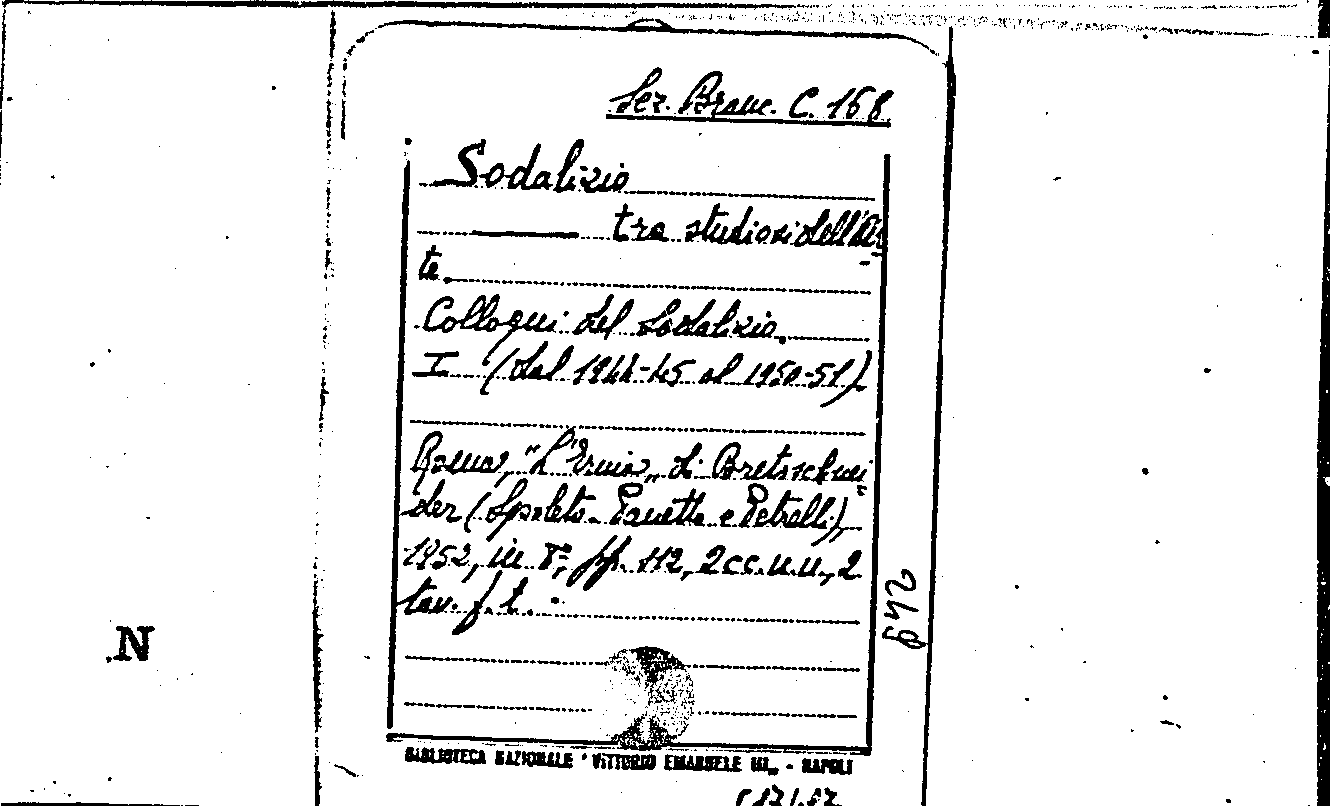 Sez. Branc. C. 168
Sodalizio
tra studiosi dell'Ar-
te.
Colloqui del Sodalizio.
I (dal 1944-45 al 1950-51).
Roma, "L'Erma" di Bretschnei-
der (Spoleto - Panetto e Petrelli),
1952, in 8°, pp. 112, 2 cc. n. n., 2
tav. f. t. -
N
BIBLIOTECA NAZIONALE "VITTORIO EMANUELE III" - NAPOLI